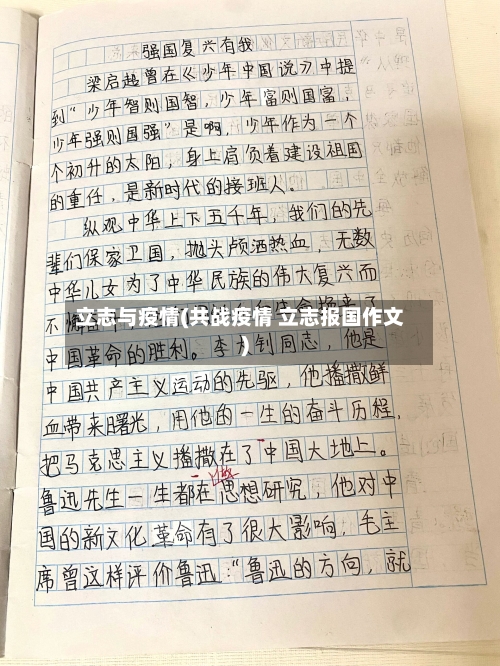 强国复兴有我
梁启超曾在《少年中国说》中提
到“少年智则国智,少年富则国富,
少年强则国强”是啊,少年作为一个
个初升的太阳,身上肩负着建设祖国
的重任,是新时代的接班人。
纵观中华上下五千年,我们的先
辈们保家卫国,抛头颅洒热血,无数
中华儿女为了中华民族的伟大复兴而
不
立志与疫情(共战疫情 立志报国作文
)
中国革命的胜利。李大钊同志,他是
中国共产主义运动的先驱,他播撒鲜
血带来曙光,用他的一生的奋斗历程,
把马克思主义播撒在了中国大地上。
鲁迅先生一生都在思想研究,他对中
国的新文化革命有了很大影响,毛主
席曾这样评价鲁迅:“鲁迅的方向,就